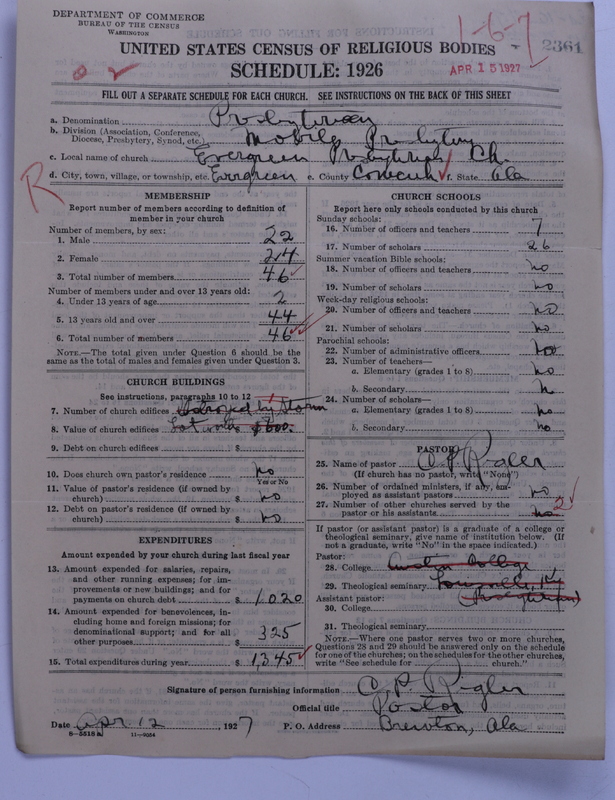 DEPARTMENT OF COMMERCE
BUREAU OF THE CENSUS
WASHINGTON
1-6-7
2361
UNITED STATES CENSUS OF RELIGIOUS BODIES
SCHEDULE: 1926
APR 15 1927
FILL OUT A SEPARATE SCHEDULE FOR EACH CHURCH. SEE INSTRUCTIONS ON THE BACK OF THIS SHEET
a. Denomination Presbyterian
b. Division (Association, Conference, Diocese, Presbytery, Synod, etc.) Mobile Presbytery
c. Local name of church Evergreen Presbyterian Ch.
d. City, town, village, or township, etc. Evergreen e. County Conecuh f. State Ala
R
MEMBERSHIP
Report number of members according to definition of
member in your church
Number of members, by sex:
1. Male 22
2. Female 24
3. Total number of members 46
Number of members under and over 13 years old:
4. Under 13 years of age 2
5. 13 years old and over 44
6. Total number of members 46
NOTE.—The total given under Question 6 should be the
same as the total of males and females given under Question 3.
CHURCH BUILDINGS
See instructions, paragraphs 10 to 12
7. Number of church edifices Destroyed by Storm
8. Value of church edifices Lot worth $600.
9. Debt on church edifices $
10. Does church own pastor's residence No
Yes or No
11. Value of pastor's residence (if owned by
church) $ No
12. Debt on pastor's residence (if owned by
church) $ No
EXPENDITURES
Amount expended by your church during last fiscal year
13. Amount expended for salaries, repairs,
and other running expenses; for im-
provements or new buildings; and for
payments on church debt $ 1020
14. Amount expended for benevolences, in-
cluding home and foreign missions; for
denominational support; and for all
other purposes $ 325
15. Total expenditures during year $ 1345
CHURCH SCHOOLS
Report here only schools conducted by this church
Sunday schools:
16. Number of officers and teachers 7
17. Number of scholars 26
Summer vacation Bible schools:
18. Number of officers and teachers no
19. Number of scholars no
Week-day religious schools:
20. Number of officers and teachers no
21. Number of scholars no
Parochial schools:
22. Number of administrative officers no
23. Number of teachers—
a. Elementary (grades 1 to 8) no
b. Secondary n
24. Number of scholars—
a. Elementary (grades 1 to 8) no
b. Secondary no
PASTOR
25. Name of pastor C. P. Rigler
(If church has no pastor, write "None")
26. Number of ordained ministers, if any, em-
ployed as assistant pastors no
27. Number of other churches served by the
pastor or his assistants no 2
If pastor (or assistant pastor) is a graduate of a college or
theological seminary, give name of institution below. (If
not a graduate, write "No" in the space indicated.)
Pastor:
28. College Austin College
29. Theological seminary Louisville, Ky
Assistant pastor: (Presbyterian)
30. College
31. Theological seminary
NOTE.—Where one pastor serves two or more churches,
Questions 28 and 29 should be answered only on the schedule
for one of the churches; on the schedules for the other churches,
write "See schedule for church."
Signature of person furnishing information C. P. Rigler
Official title Pastor
Date Apr 12, 1927 P. O. Address Brewton, Ala
8-5518a 11-9054